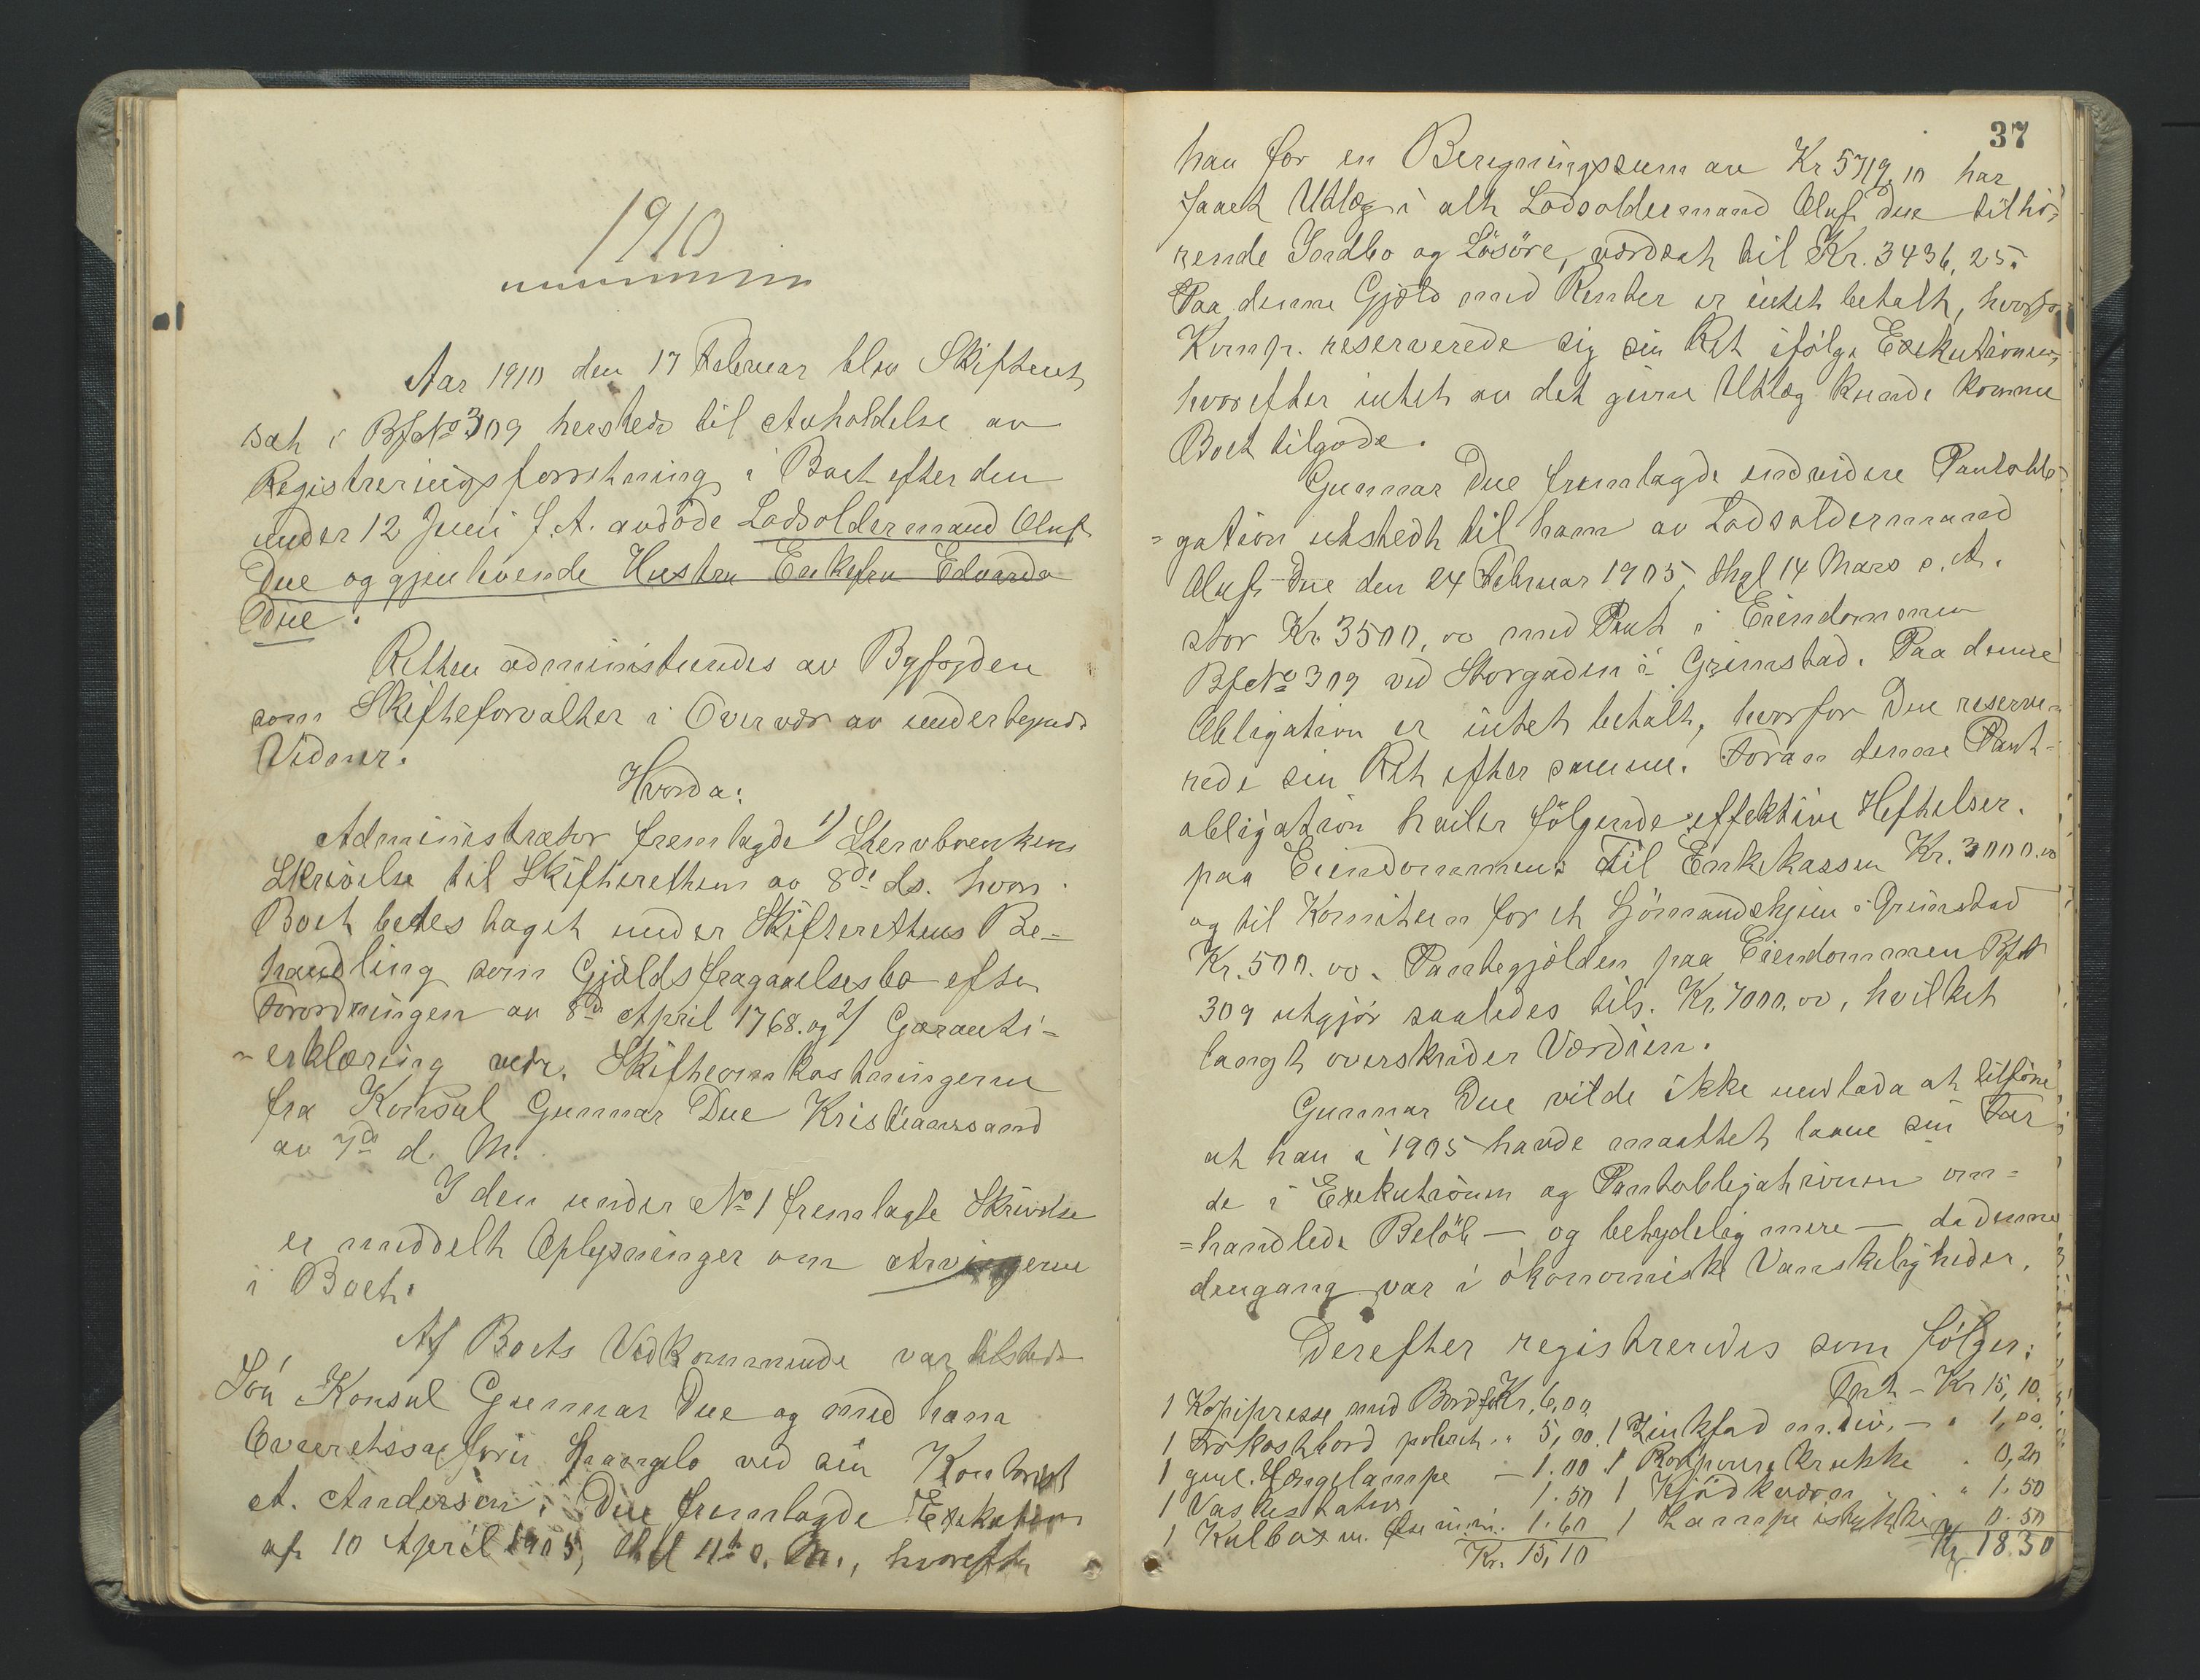 1910
Aar 1910 den 17 Februar blev Skifteret
sat i Bf No 309 hersteds til Avholdelse av
Registreringsforretning i Boet efter den
under 12 Juni f. A. avdöde Lodsoldermand Oluf
Due og gjenlevende Hustru Enkefru Edvarda
Due.
Retten administreredes av Byfogden
som Skifteforvalter i Overvær av undertegnede
Vidner.
Hvorda:
Administrator fremlagde 1) Stervboenkens
Skrivelse til Skifteretten av 8de ds. hvori
Boet bedes taget under Skifterettens Be-
handling som Gjældsfragaaelsesbo efter
Forordningen av 8de April 1768. og 2) Garanti-
=erklæring vedr. Skifteomkostningerne
fra Konsul Gunnar Due Kristianssand
av 7de d. M.
I den under No 1 fremlagte Skrivelse
er meddelt Oplysninger om Arvingerne
i Boet.
Af Boets Vedkommende var tilstede
Sön Konsul Gunnar Due og med ham
Overretssagförer ved sin
A. Andersen. Due fremlagde Exekution
af 10 April 1905, thgl 11te s. M., hvorefter
37
han for en Beregningssum av Kr 5719,10 har
faaet Utlæg i alt Lodsoldermand Oluf Due tilhö-
rende Indbo og Lösöre, værdsat til Kr. 3436,25.
Paa denne Gjæld med Renter er intet betalt, hvorfor
Komp. reserverede sig sin Ret ifölge Exekutionen,
hvorefter intet av det givne Utlæg kunde komme
Boet tilgode.
Gunnar Due fremlagde endvidere Pantobli-
=gation utstedt til ham av Lodsoldermand
Oluf Due den 24 Februar 1905, thgl 14 Mars s. A.
stor Kr. 3500,00 med Pant i Eiendommen
Bf No 309 ved Storgaden i Grimstad. Paa denne
Obligation er intet betalt, hvorfor Due reserve-
rede sin Ret efter samme. Foran denne Pant-
obligation hviler fölgende effektive Heftelser
paa Eiendommen: Til Enkekassen Kr. 3000.00
og til Komiteen for et Sjömandshjem i Grimstad
Kr. 500.00. Pantegjælden paa Eiendommen Bf No
309 utgjör saaledes tils. Kr. 7000.00, hvilket
langt overskrider Værdien.
Gunnar Due vilde ikke undlade at tilföie
at han i 1905 havde maattet laane sin Far
de i Exekutionen og Pantobligationen om-
=handlede Belöb — og betydelig mere — da denne
dengang var i ökonomiske Vanskeligheder.
Derefter registreredes som fölger:
1 Kopipresse med Bord Kr. 6,00
1 Frokostbord poleret " 5,00
1 gml. Hængelampe — 1.00
1 Vaskestativ 1.50
1 Kulbox m. 1.60
Kr. 15,10
Trpt — Kr 15,10
1 Zinkfad m. div. — " 1,00
1 Krukke " 0,20
1 Kjödkværn " 1.50
1 Lampe istykker " 0.50
Kr. 18.30